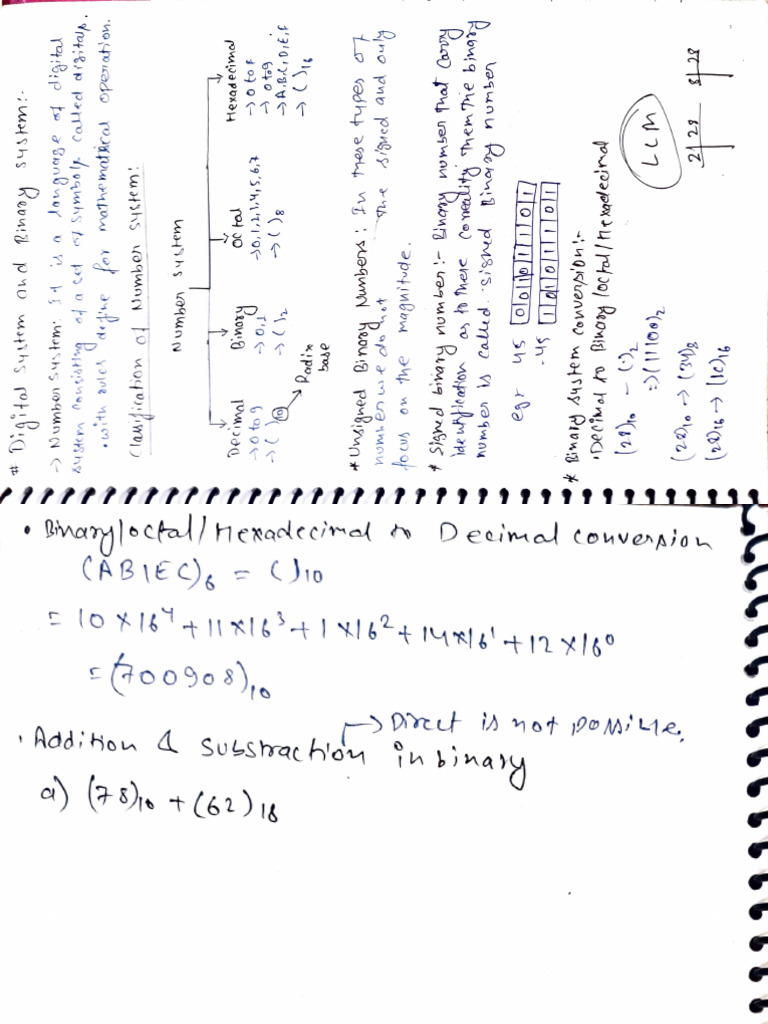 # Digital System and Binary System:-
→ Number System: It is a language of digital
system consisting of a set of symbols called digitals.
• with rules define for mathematical operation.
Classification of Number System:
Number System
Decimal
→ 0 to 9
→ ( )10
Radix
base
Binary
→ 0,1
→ ( )2
Octal
→ 0,1,2,3,4,5,6,7
→ ( )8
Hexadecimal
→ 0 to F
→ 0 to 9
→ A,B,C,D,E,F
→ ( )16
* Unsigned Binary Numbers: In these types of
number we do not the signed and only
focus on the magnitude.
* Signed binary number:- Binary number that carry
identification as to there them the binary
number is called signed Binary number
egr 45 0 0 1 0 1 1 0 1
-45 1 0 1 0 1 1 0 1
* Binary system conversion:-
• Decimal to Binary/octal/Hexadecimal
(28)10 - ( )2
⇒ (11100)2
(28)10 → (34)8
(28)10 → (1C)16
LCM
2 28
8 28
• Binary/octal/Hexadecimal to Decimal conversion
(AB1EC)6 = ( )10
= 10×16⁴ + 11×16³ + 1×16² + 14×16¹ + 12×16⁰
= (700908)10
→ Direct is not possible.
• Addition & Substraction in binary
a) (78)10 + (62)18